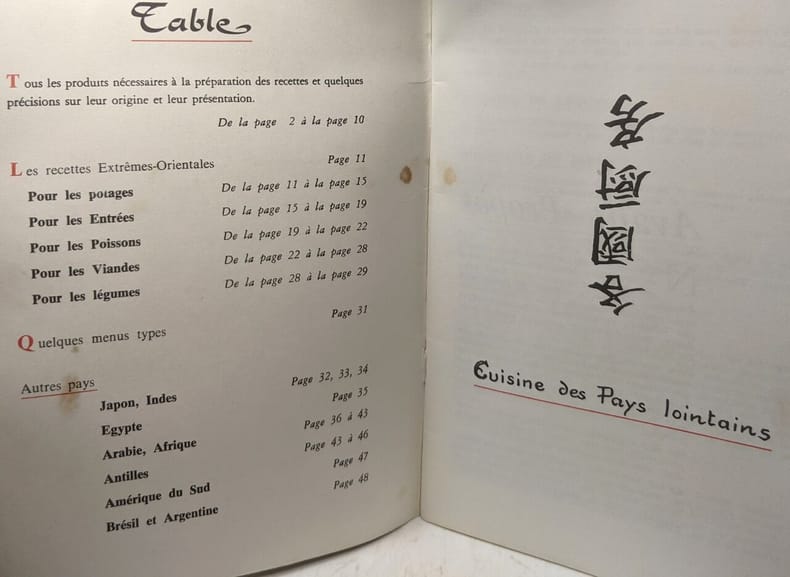 Table
Tous les produits nécessaires à la préparation des recettes et quelques
précisions sur leur origine et leur présentation.
De la page 2 à la page 10
Les recettes Extrêmes-Orientales Page 11
Pour les potages De la page 11 à la page 15
Pour les Entrées De la page 15 à la page 19
Pour les Poissons De la page 19 à la page 22
Pour les Viandes De la page 22 à la page 28
Pour les légumes De la page 28 à la page 29
Quelques menus types Page 31
Autres pays
Japon, Indes Page 32, 33, 34
Egypte Page 35
Arabie, Afrique Page 36 à 43
Antilles Page 43 à 46
Amérique du Sud Page 47
Brésil et Argentine Page 48
各國廚房
Cuisine des Pays lointains